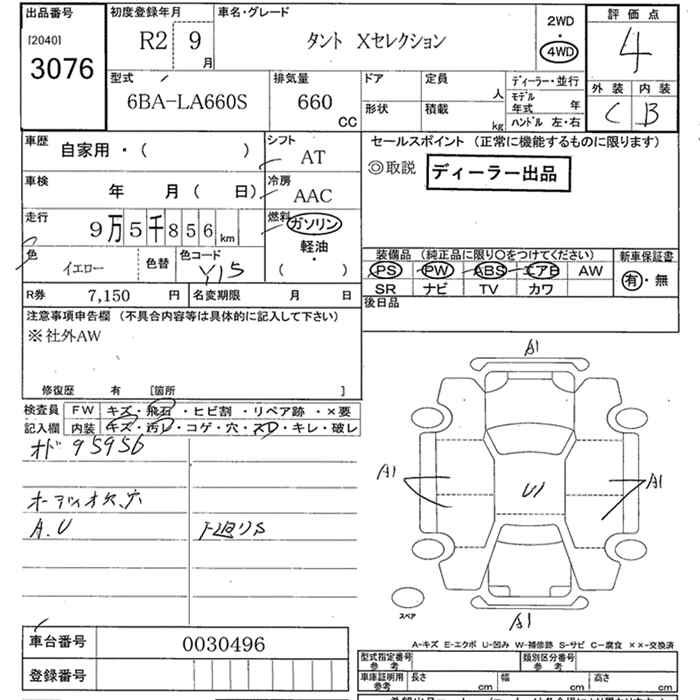 出品番号
[2040]
3076
初度登録年月
R2 9月
車名・グレード
タント Xセレクション
2WD
・
4WD
評価点
4
外装 内装
C B
型式
6BA-LA660S
排気量
660
CC
ドア
形状
定員 人
積載 kg
ディーラー・並行
モデル年式 年
ハンドル 左・右
車歴 自家用・( )
シフト AT
セールスポイント (正常に機能するものに限ります)
◎取説 ディーラー出品
車検 年 月( 日)
冷房 AAC
走行 9万5千856km
燃料 ガソリン
軽油
・
( )
色 イエロー 色替 色コード Y15
装備品 (純正品に限り○をつけてください)
PS PW ABS エアB AW
SR ナビ TV カワ
新車保証書
有・無
R券 7,150 円 名変期限 月 日
後日品
注意事項申告欄 (不具合内容等は具体的に記入して下さい)
※社外AW
修復歴 有 [箇所 ]
検査員記入欄
FW キズ・飛石・ヒビ割・リペア跡・×要
内装 キズ・汚レ・コゲ・穴・スレ・キレ・破レ
オド 95956
オーディオ欠、穴
A.U
A1
A1
U1
A1
A1
スペア
A-キズ E-エクボ U-凹み W-補修跡 S-サビ C-腐食 ××-交換済
車台番号 0030496
登録番号
型式指定番号 参考
類別区分番号 参考
車庫証明用 参考
長さ cm 幅 cm 高さ cm